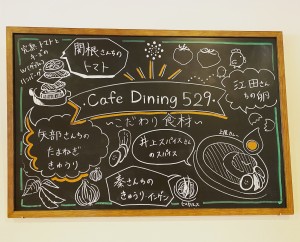 完熟トマトと
チーズの
Wパティ
ハンバーグ
関根さんちの
トマト
江田さん
ちの卵
Cafe Dining 529
〜こだわり食材〜
矢部さんちの
たまねぎ
きゅうり
井上スパイスさん
のスパイス
秦さんちの
きゅうり インゲン